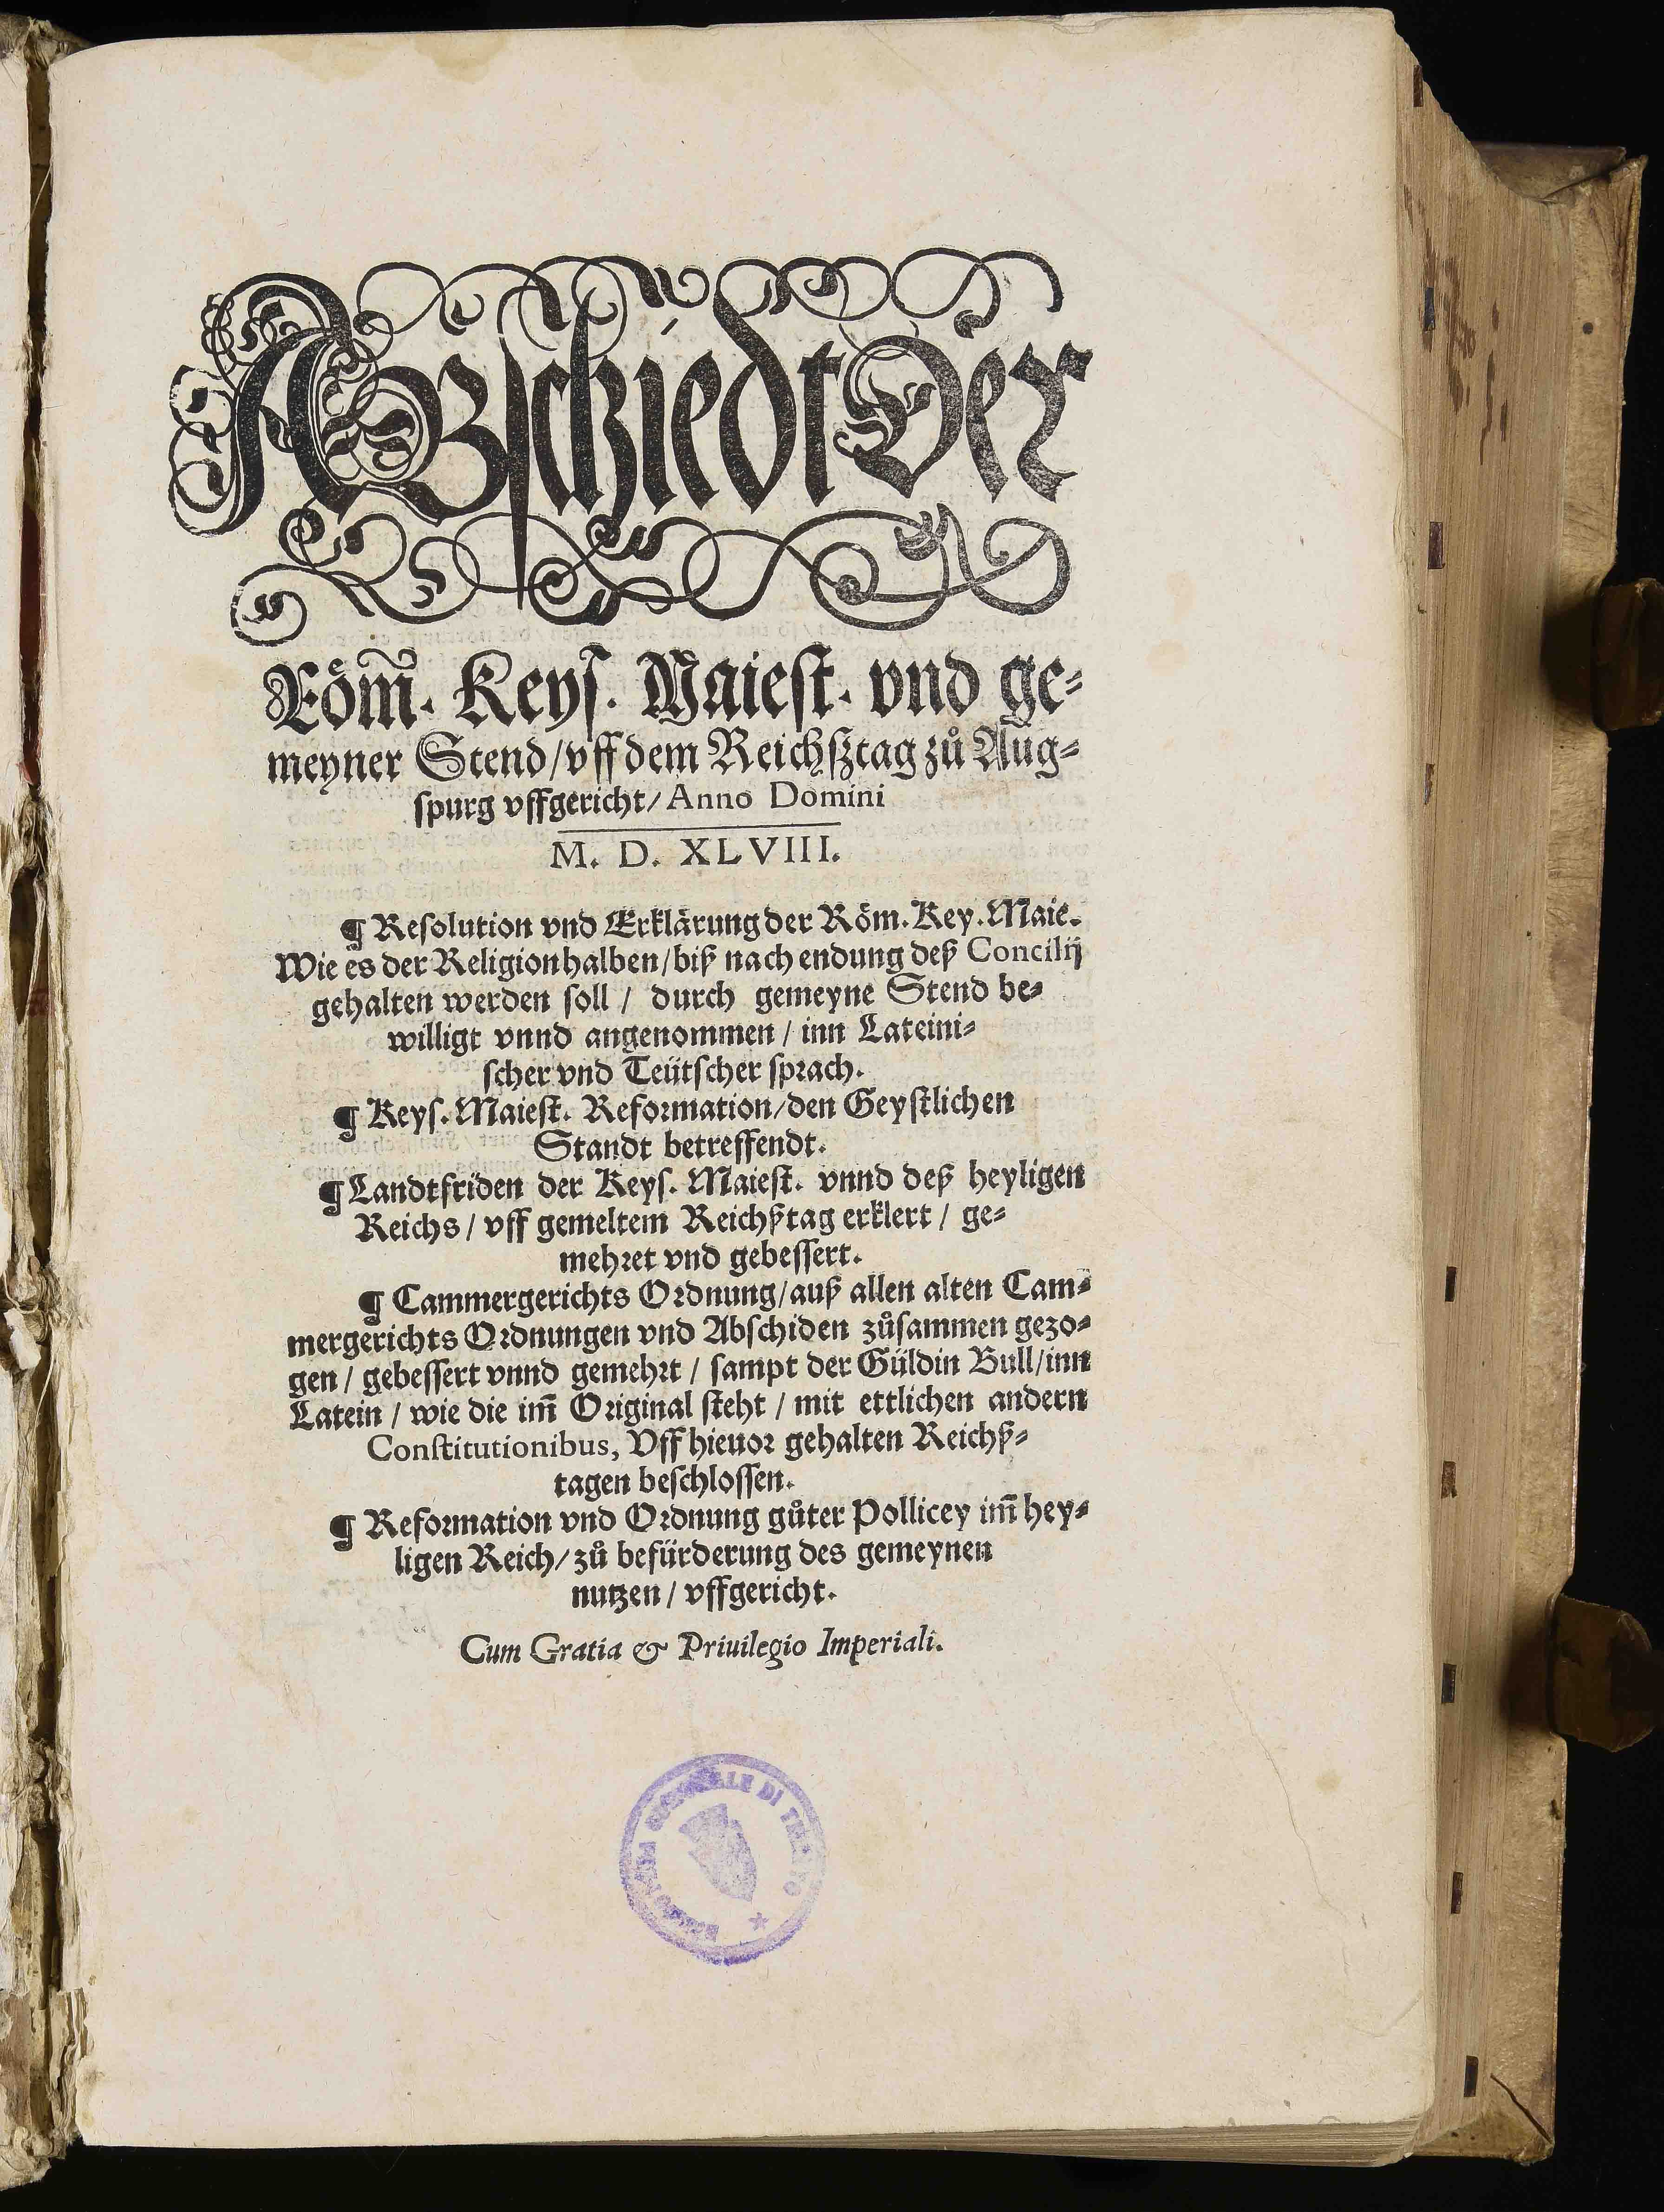 ABschiedt Der
Röm̃. Keys. Maiest. vnd ge⸗
meyner Stend/vff dem Reichßtag zů Aug⸗
spurg vffgericht/Anno Domini
M. D. XLVIII.
¶ Resolution vnd Erklärung der Röm. Key. Maie.
Wie es der Religion halben/biß nach endung deß Concilij
gehalten werden soll / durch gemeyne Stend be⸗
willigt vnnd angenommen / inn Lateini⸗
scher vnd Teütscher sprach.
¶ Keys. Maiest. Reformation/den Geystlichen
Standt betreffendt.
¶ Landtfriden der Keys. Maiest. vnnd deß heyligen
Reichs / vff gemeltem Reichßtag erklert / ge⸗
mehret vnd gebessert.
¶ Cammergerichts Ordnung/auß allen alten Cam⸗
mergerichts Ordnungen vnd Abschiden zůsammen gezo⸗
gen / gebessert vnnd gemehrt / sampt der Güldin Bull/inn
Latein / wie die im̃ Original steht / mit ettlichen andern
Constitutionibus, Vff hieuor gehalten Reichß⸗
tagen beschlossen.
¶ Reformation vnd Ordnung gůter Pollicey im̃ hey⸗
ligen Reich/zů befürderung des gemeynen
nutzen / vffgericht.
Cum Gratia & Priuilegio Imperiali.
DI